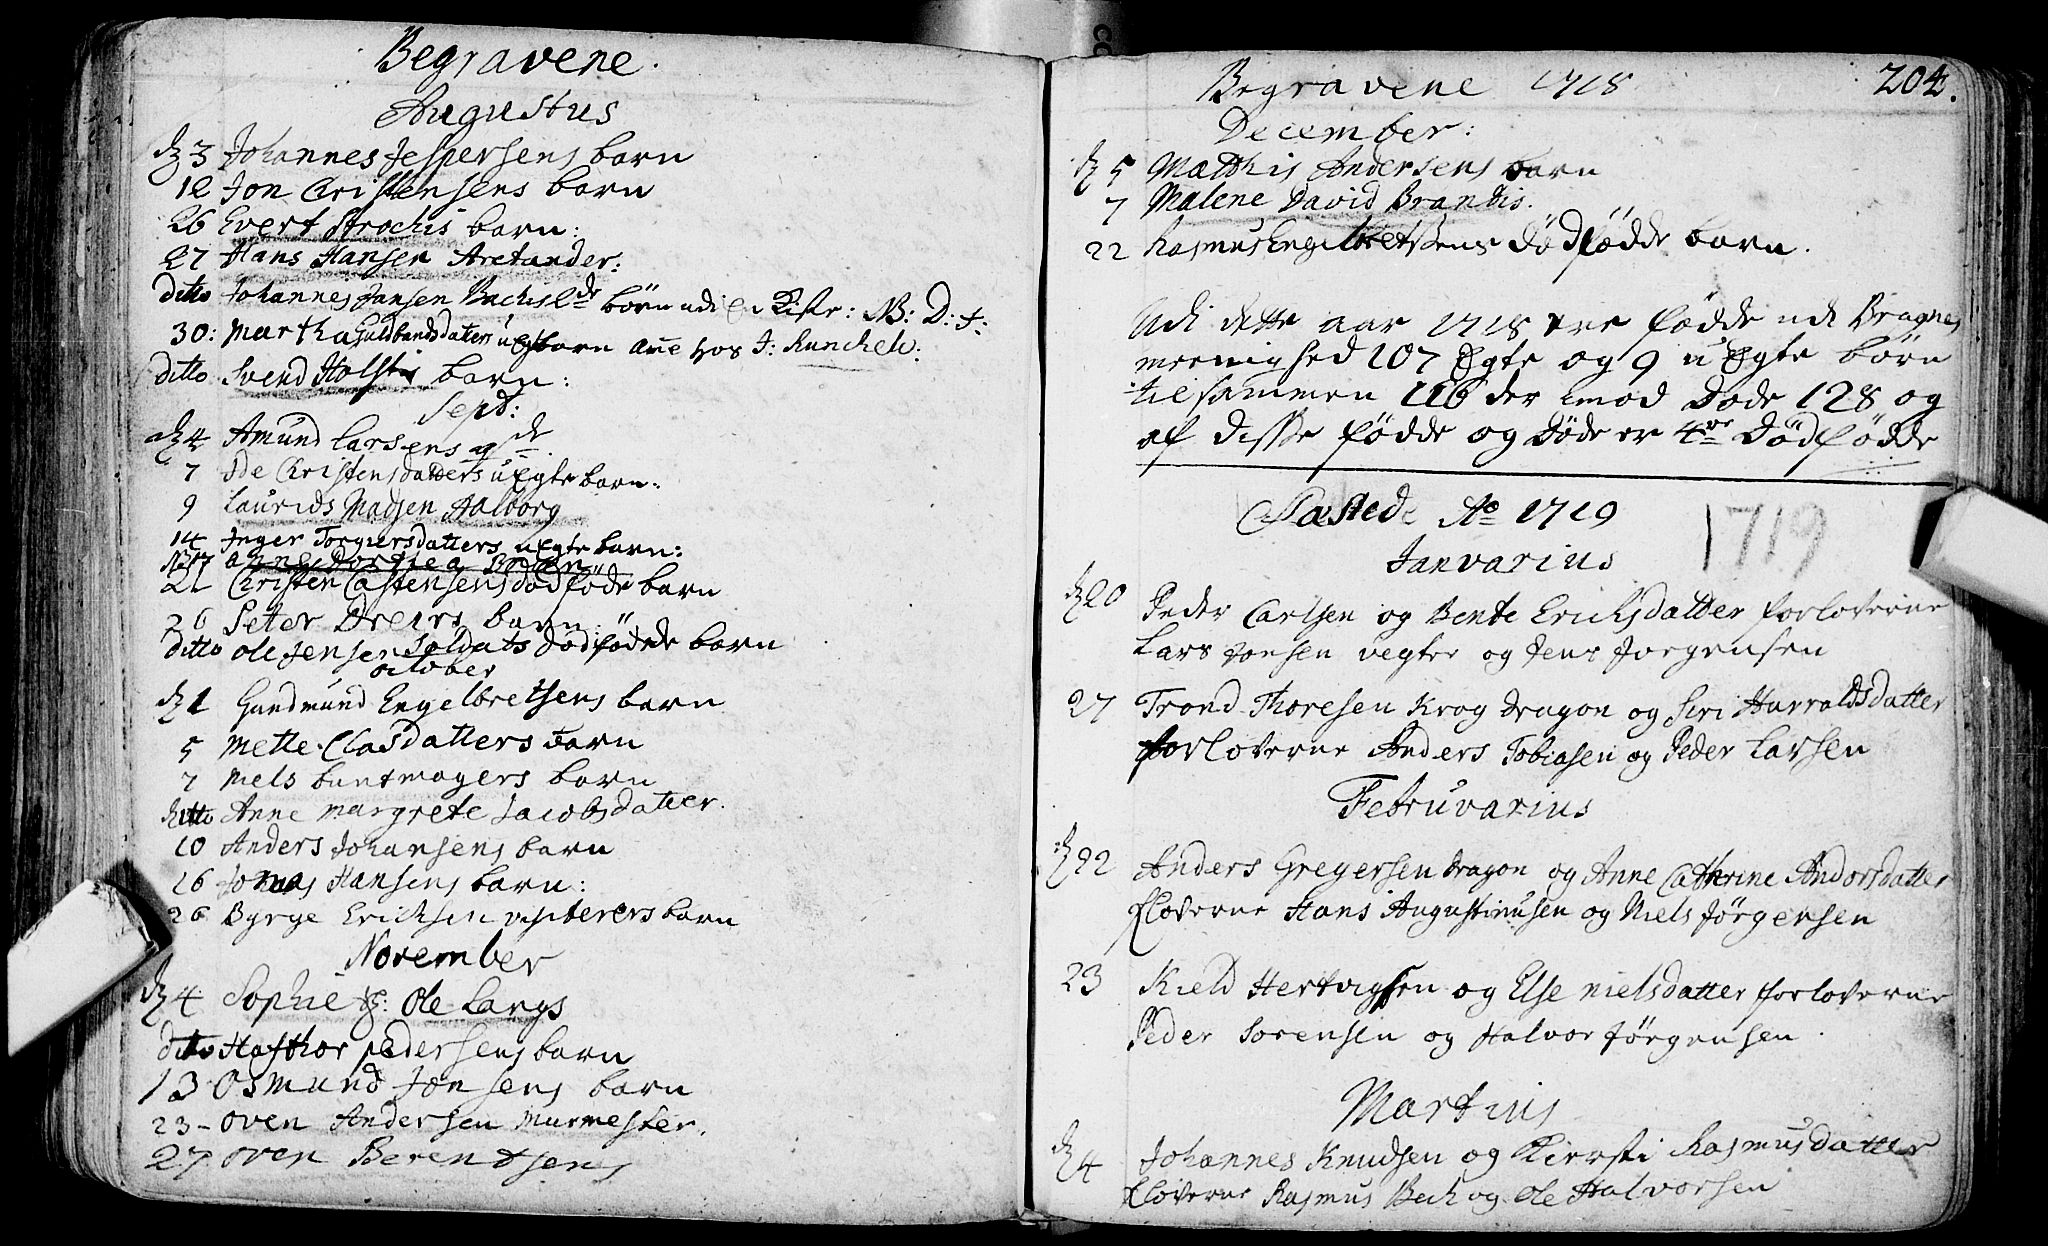 Begravene.
Augustus
dz 3 Johannes Jespersens barn
12 Jon Cristensens barn
26 Evert Strochis barn:
27 Hans Hansen Aretander:
ditto Johannes Jansen Bachis børn udi Kiste: NB: D: J:
30: Martha Guldbrandsdatters uEgte barn hos J: Runchel:
ditto Svend Holstis barn:
Sept:
dz 4 Amund Larsens
7 Ide Christensdatters uEgte barn:
9 Laurids Madsen Aalborg
14 Inger Torgiersdatters uEgte barn:
NB 17 Anne Dorthea
21 Christen Castensens dødføde barn
26 Peter Dreirs barn:
ditto Ole Jensen Soldats dødfødde barn
october
dz 1 Gundmund Engelbretsens barn
5 Mette Clasdatters barn
7 Niels buntmagers barn
ditto Anne Margrete Jacobsdatter.
10 Anders Johansens barn
16 Jonas Hansens barn:
26 Byrge Ericksen visiterers barn
November
dz 4 Sophie Ole Largs
ditto Hafthor Pedersens barn
13 Osmund Jonsens barn
23 - Oven Andersen Murmester.
27 Oven Berendtsens
Begravene 1718
204.
December:
dz 5 Matthis Andersens barn
7 Malene David Brandis.
22 Rasmus Engelbretsens dødfødde barn.
Udi dette aar 1718 ere fødde udi Bragnes
meenighed 107 Egte og 9 uEgte børn
tilsammen 116 der imod Døde 128 og
af disse fødde og Døde er 4re Dødfødde
Fæstede Ao 1719
1719
Janvarius
dz 20 Peder Carlsen og Bente Ericksdatter forloverne
Lars Jonsen vegter og Jens Jorgensen
27 Trond Thoresen Krog Dragon og Siri Harraldsdatter
forloverne Anders Tobiasen og Peder Larsen
Februvarius
dz 22 Anders Gregersen Dragon og Anne Cathrine Andorsdatter
floverne Hans Augustinusen og Niels Jørgensen
23 Kield Hertvigsen og Else Nielsdatter forloverne
Peder Sorensen og Halvor Jørgensen.
Martius
dz 4 Johannes Knudsen og Kiersti Rasmusdatter
floverne Rasmus Bech og Ole Halvorsen